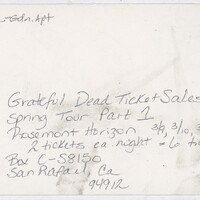 -Gdn. Apt
Grateful Dead Ticket Sales
Spring Tour Part 1
Rosemont Horizon 3/9, 3/10, 3
2 tickets ea. night = 6 ti
Box C-S8150
San Rafael, Ca
94912